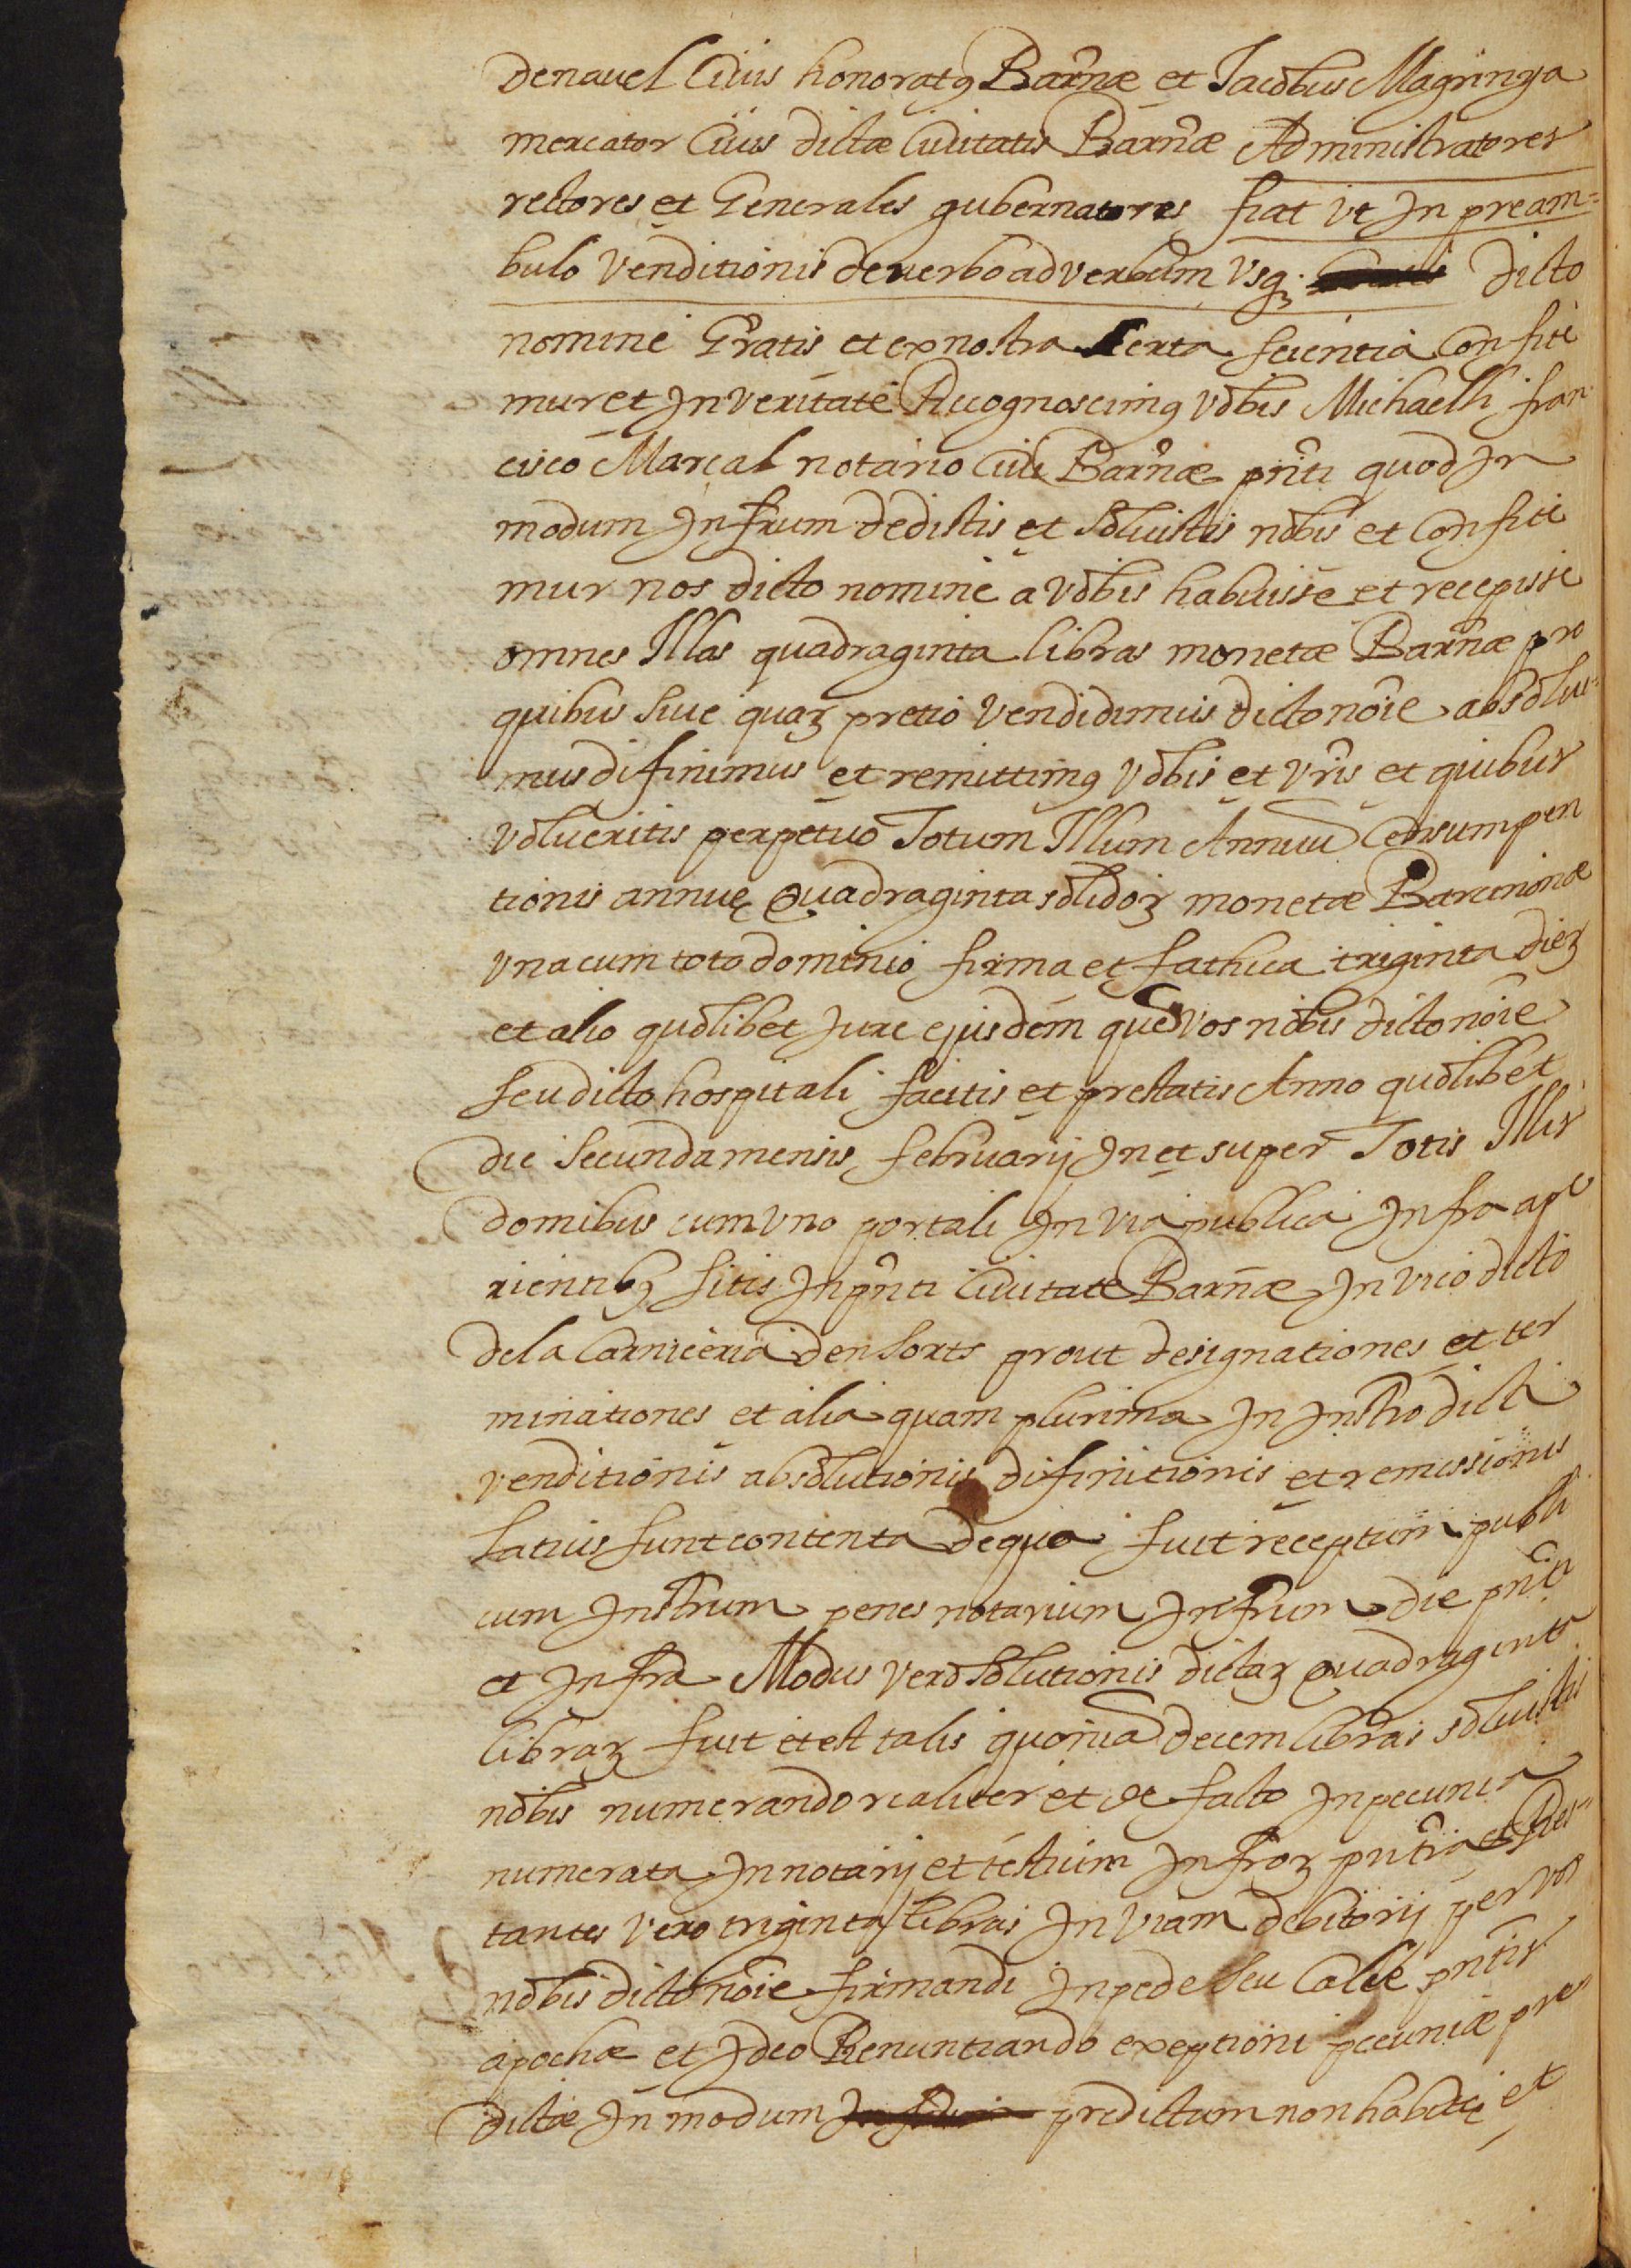 denauel Ciuis honoratꝰ Barñæ et Jacobus Magrinya
mercator Ciuis dictæ Ciuitatis Barñæ Administratores
rectores et Generales gubernatores fiat vt Jn pream=
bulo venditionis de verbo ad verbum vsqꝫ dicto
nomine Gratis et ex nostra Certa scientia Confite
mur et Jn veritate Recognoscimꝰ vobis Michaelli fran
cisco Marçal notario Ciui Barñæ pñti quod Jn
modum Jnfrũm dedistis et soluistis nobis et Confite
mur nos dicto nomine a vobis habuisse et recepisse
omnes Illas quadraginta libras monetæ Barñæ pro
quibus siue quaꝝ pretio vendidimus dicto nõie absolui=
mus difinimus et remittimꝰ vobis et vr̃is et quibus
volueritis perpetuo Totum Illum Annuũ Censum pen
tionis annuę quadraginta solidoꝝ monetæ Barcinonæ
vna cum toto dominio firma et fathica triginta dieꝝ
et alio quolibet Jure ejusdem quẽ vos nobis dicto nõie
seu dicto hospitali facitis et prestatis Anno quolibet
die secunda mensis februarij Jn et super Totis Illis
domibus cum vno portali Jn via publica Jnfra ape
rientibꝫ sitis Jn pñti Ciuitate Barñæ Jn vico dicto
de la Carniceria den sorts prout designationes et ter
minationes et alia quam plurima Jn Jnstr̃o dicti
venditionis absolutionis difinitionis et remissionis
latius sunt contenta de quo fuit receptum publi
cum Jnstr̃um penes notarium Jnfr̃um die pñti
et Jnfr̃a Modus vero solutionis dictaꝝ quadraginta
libraꝝ fuit et est talis quoniã decem libras soluistis
nobis numerando realiter et de facto Jn pecunia
numerata Jn notarij et testium Jnfr̃oꝝ pñtia et Res=
tantes vero triginta libras Jn viam debitorij per vos
nobis dicto nõie firmandi Jn pede seu Calce pñtis
apochæ et Jdeo Renuntiando exeptioni pecuniæ pre
dictæ Jn modum predictum non habitę et